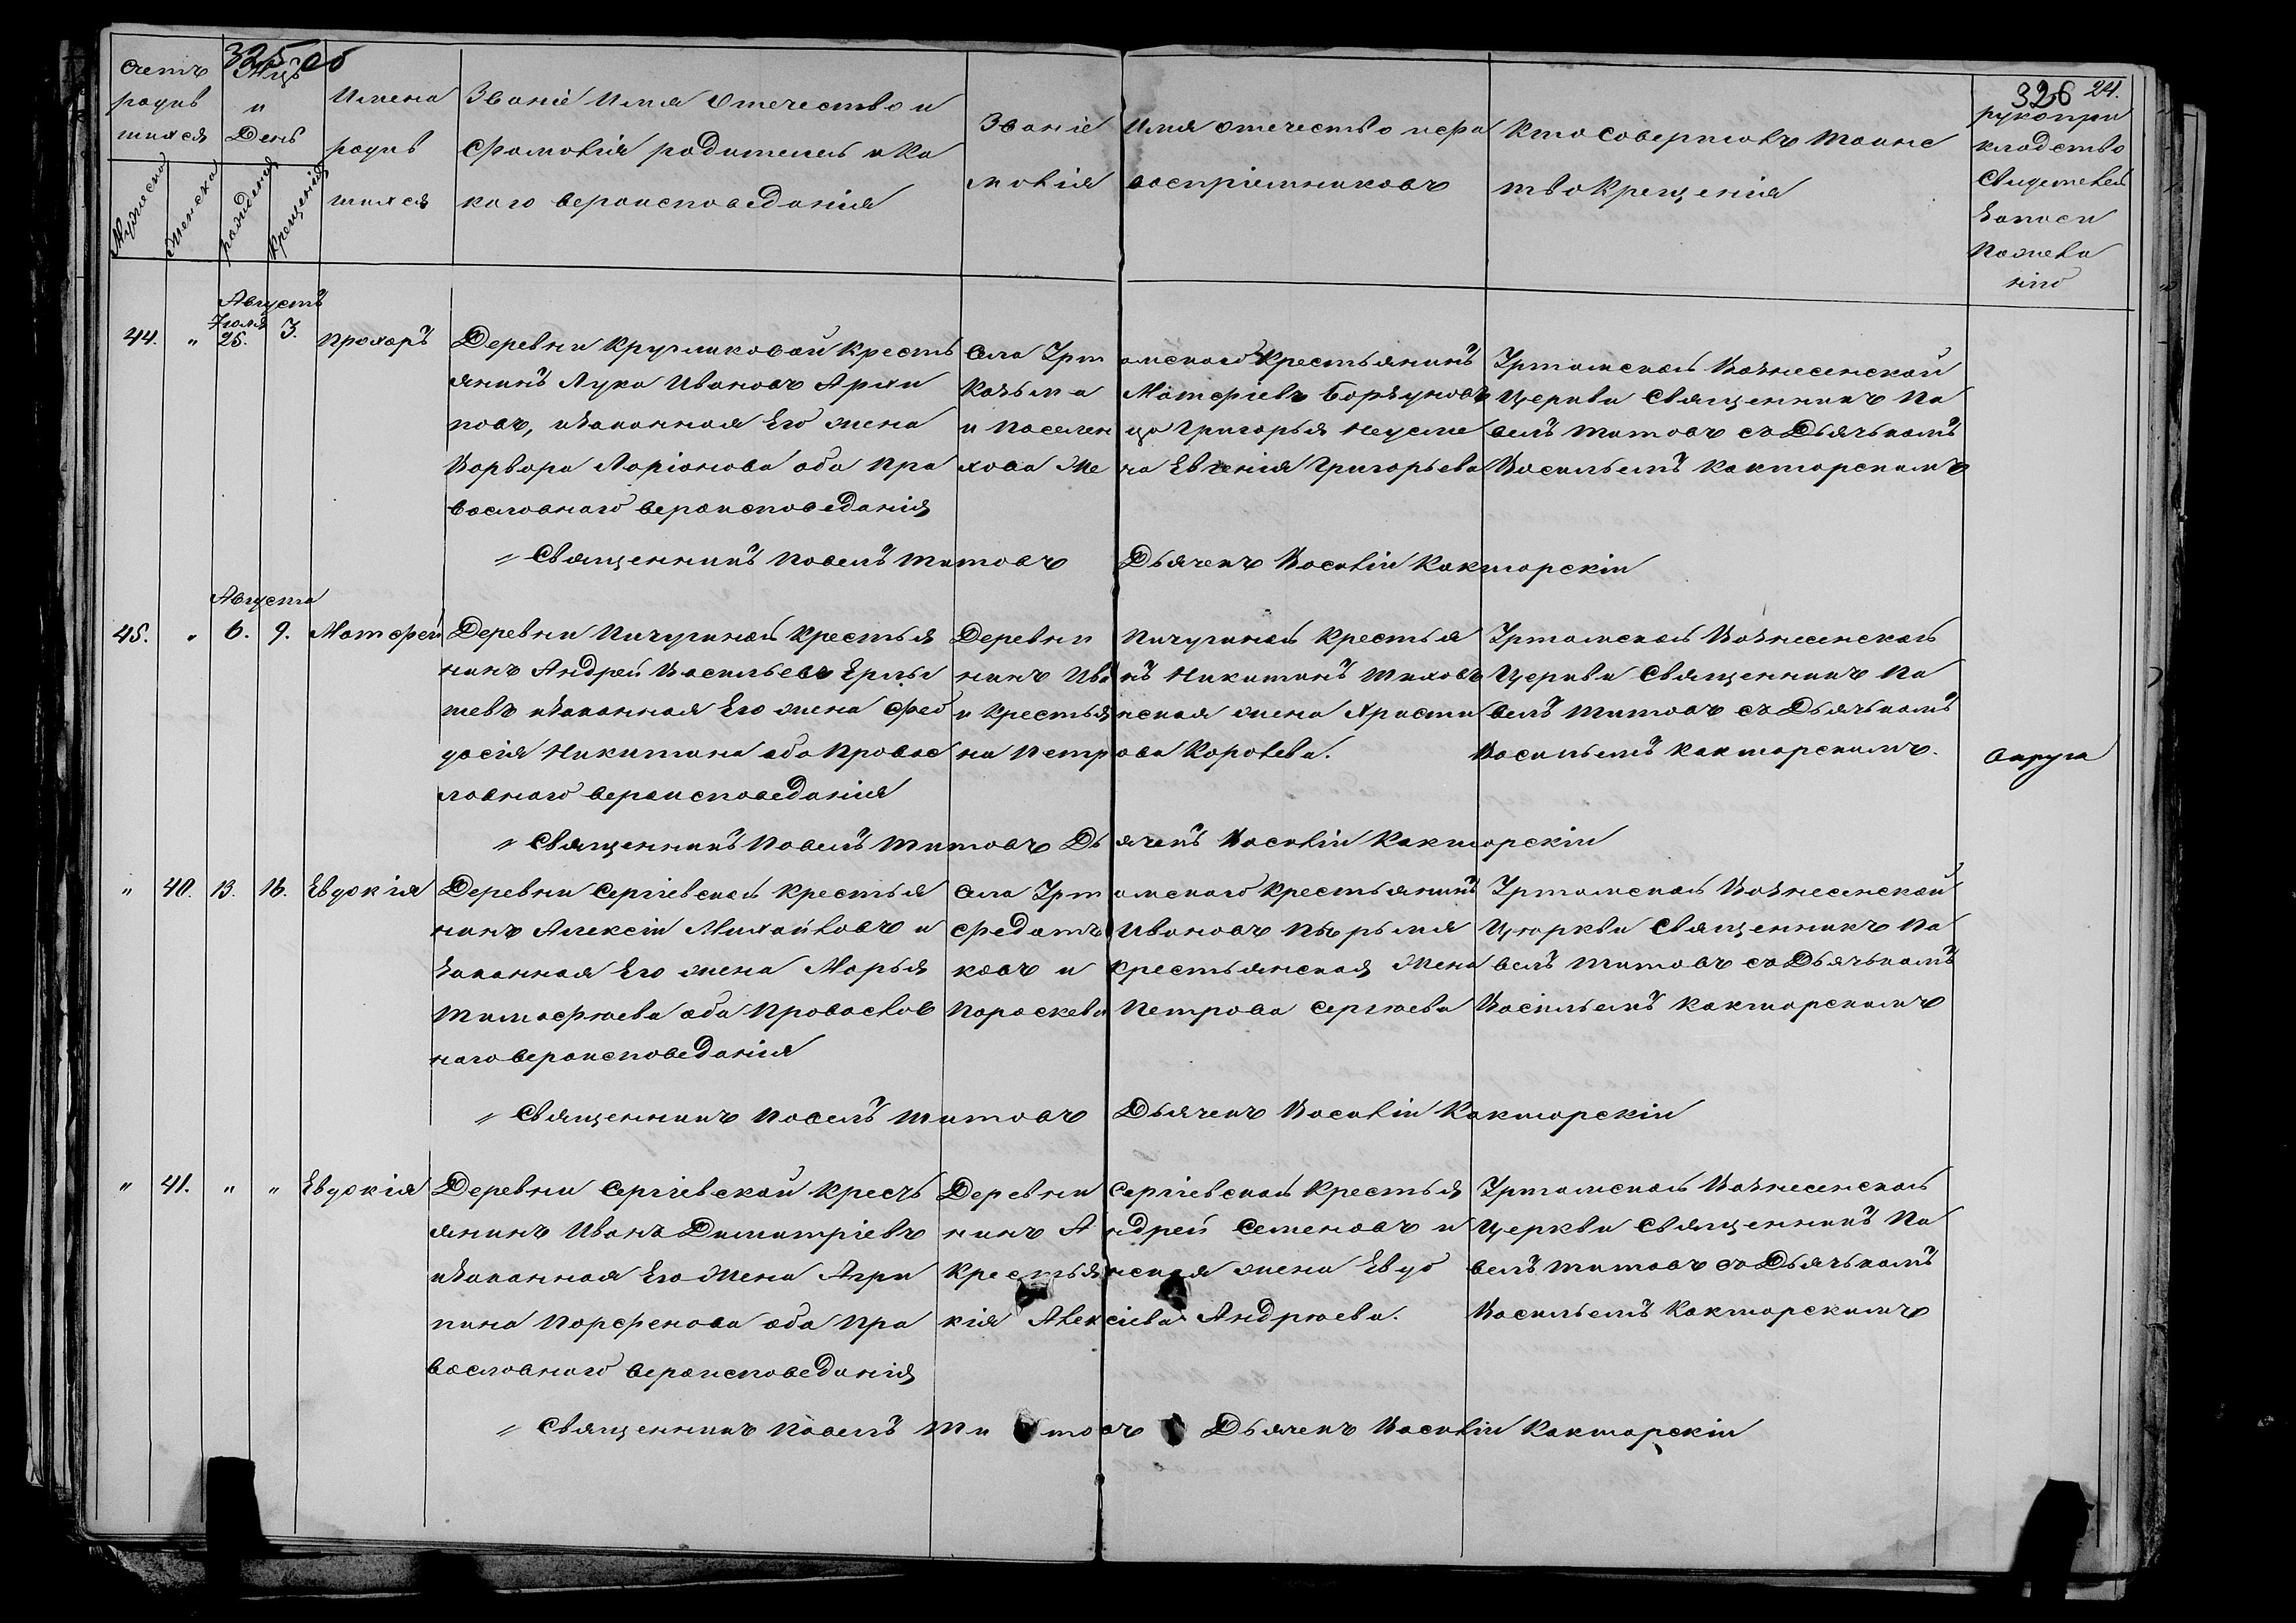 325 об
326 24.
Счетъ родив шихся
Мужеска
Женска
Мцъ и День
рожденія
крещенія
Имена родив шихся
Званіе Имя Отечество и
Фамилія родителей и ка
кого вероисповеданія
Званіе Имя отечество и фа
милія воспріемниковъ
Кто совершалъ таинс
тво Крещенія
рукопри
кладство
Свидетелей
Записи
По жела
нію
Августъ
Іюля
44. " 25. 3. Прохоръ
Деревни Кругликовой Кресть
янинъ Лука Ивановъ Архи
повъ, и законная Его жена
Варвара Ларіонова оба Пра
вославнаго вероисповеданія
Села Ирт омскаго Крестьянинъ
Козьма Матфіевъ
и Поселен ца Григорья
Же на Евгенія Григорьева
Иртомской Вознесенской
Церкви Священникъ Па
велъ Титовъ съ Дьячькомъ
Васильемъ Какшарскимъ
" Священникъ Павелъ Титовъ Дьячекъ Василій Какшарскій
Августа
45. " 6. 9. Матфей
Деревни Пичугиной Крестья
нинъ Андрей Васильевъ
и законная Его жена Фео
досія Никитина оба Правос
лавнаго вероисповеданія
Деревни Пичугиной Крестья
нинъ Ива нъ Никитинъ Тиховъ
и Крестья нская жена Христи
на Петр ова Королева.
Иртомской Вознесенской
Церкви Священникъ Па
велъ Титовъ съ Дьячькомъ
Васильемъ Какшарскимъ.
Округа
" Священникъ Павелъ Титовъ Дь ячекъ Василій Какшарскій
" 40. 13. 16. Евдокія
Деревни Сергіевской Крестья
нинъ Алексій Михайловъ и
Законная Его жена Марья
Тимофѣева оба Православ
наго вероисповеданія
Села Ирт омскаго Крестьянинъ
Ивановъ
ковъ и Крестьянская Жена
Параскева Петрова Сергѣева
Иртомской Вознесенской
Церкви Священникъ Па
велъ Титовъ съ Дьячькомъ
Васильемъ Какшарскимъ
" Священникъ Павелъ Титовъ Дьячекъ Василій Какшарскій
" 41. " " Евдокія
Деревни Сергіевской Кресть
янинъ Иванъ Димитріевъ
и законная Его Жена Агри
пина Парфенова оба Пра
вославнаго вероисповеданія
Деревни Сергіевской Крестья
нинъ А ндрей Семеновъ и
Крестья нская жена Евдо
кія Алек сіева Андрѣева.
Иртомской Вознесенской
Церкви Священникъ Па
велъ Титовъ съ Дьячькомъ
Васильемъ Какшарскимъ
" Священникъ Павелъ Ти товъ Дьячекъ Василій Какшарскій